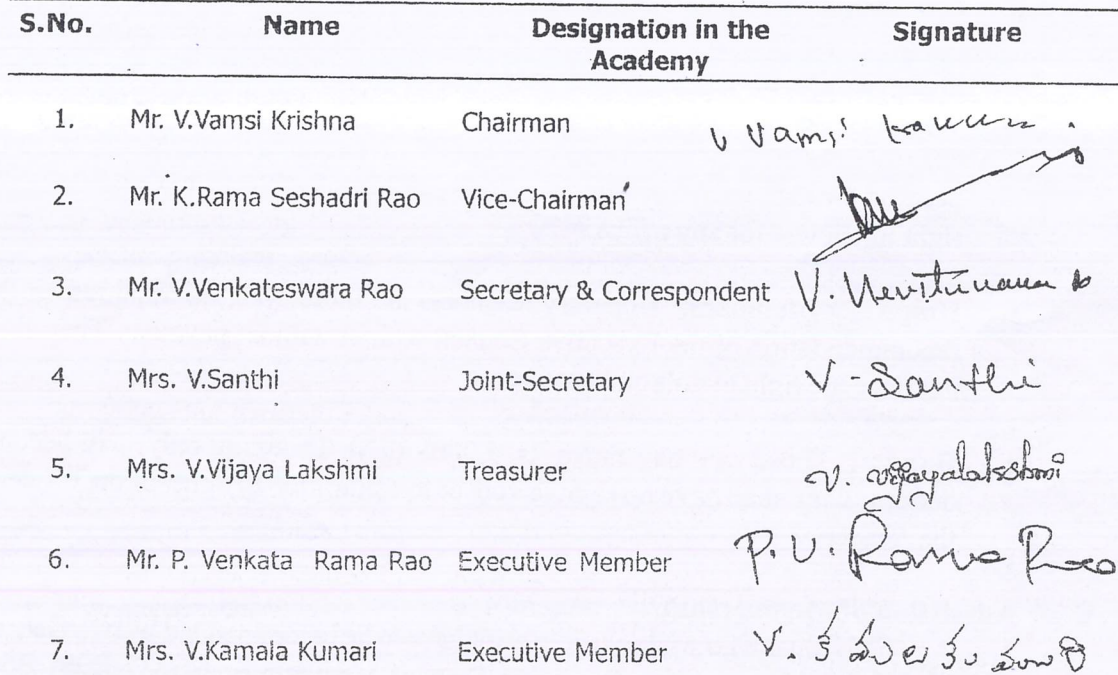 S.No. Name Designation in the Signature
Academy
1. Mr. V.Vamsi Krishna Chairman V Vamsi
2. Mr. K.Rama Seshadri Rao Vice-Chairman
3. Mr. V.Venkateswara Rao Secretary & Correspondent V.
4. Mrs. V.Santhi Joint-Secretary V-Santhi
5. Mrs. V.Vijaya Lakshmi Treasurer V. Vijayalakshmi
6. Mr. P. Venkata Rama Rao Executive Member P.V. Rama Rao
7. Mrs. V.Kamala Kumari Executive Member V. కమల కుమారి